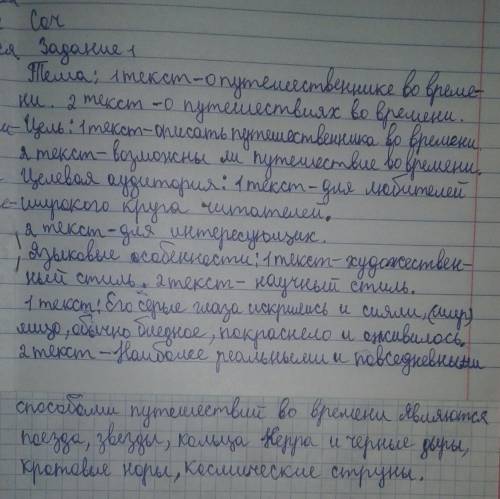 Соч
Задание 1
Тема: 1 текст-о путешественнике во време-
ни. 2 текст-о путешествиях во времени.
Цель: 1 текст-описать путешественника во времени.
2 текст-возможны ли путешествие во времени.
Целевая аудитория: 1 текст-для любителей
широкого круга читателей.
2 текст-для интересующих.
Языковые особенности: 1 текст-художествен-
ный стиль. 2 текст-научный стиль.
1 текст: Его серые глаза искрились и сияли,
лицо, обычно бледное, покраснело и оживилось,
2 текст-Наиболее реальными и повседневными
способами путешествий во времени являются
поезда, звезды, кольца Керра и черные дыры,
кротовые норы, космические струны.